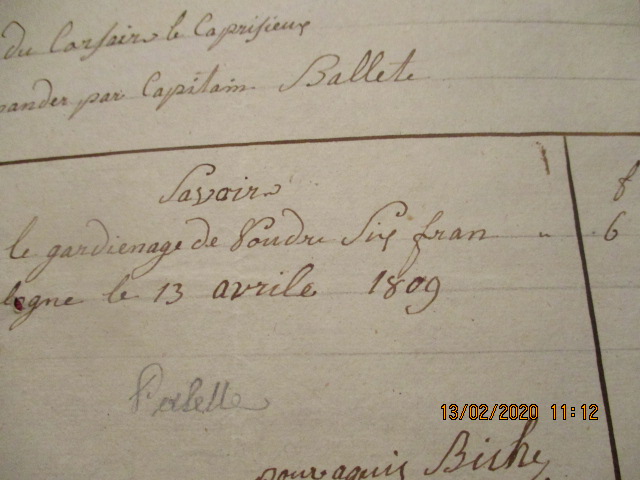 du Corsaire le Caprisieux
mander par Capitain Ballete
Savoir
f
le gardienage de Poudre Six fran " 6
logne le 13 avrile 1809
13/02/2020 11:12
pour aquis Biche